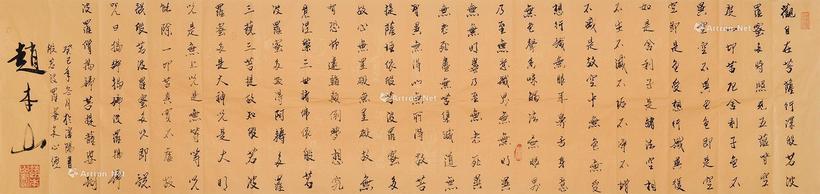 觀自在菩薩行深般若波
羅蜜多時照見五蘊皆空
度一切苦厄舍利子色不
異空空不異色色即是空
空即是色受想行識亦復
如是舍利子是諸法空相
不生不滅不垢不淨不增
不減是故空中無色無受
想行識無眼耳鼻舌身意
無色聲香味觸法無眼界
乃至無意識界無無明亦
無無明盡乃至無老死亦
無老死盡無苦集滅道無
智亦無得以無所得故菩
提薩埵依般若波羅蜜多
故心無罣礙無罣礙故無
有恐怖遠離顛倒夢想究
竟涅槃三世諸佛依般若
波羅蜜多故得阿耨多羅
三藐三菩提故知般若波
羅蜜多是大神咒是大明
咒是無上咒是無等等咒
能除一切苦真實不虛故
說般若波羅蜜多咒即說
咒曰揭諦揭諦波羅揭諦
波羅僧揭諦菩提薩婆訶
般若波羅蜜多心經
癸巳年於瀋陽書
趙本山
Artron.Net